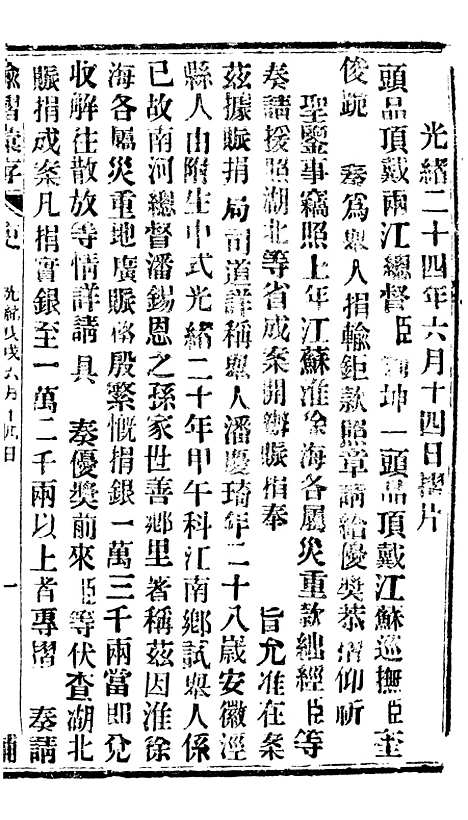 光緒二十四年六月十四日摺片
頭品頂戴兩江總督臣劉坤一頭品頂戴江蘇巡撫臣奎
俊跪 奏為舉人捐輸鉅款照章請給優獎恭摺仰祈
聖鑒事竊照上年江蘇淮徐海各屬災重款絀經臣等
奏請援照湖北等省成案開辦賑捐奉 旨允准在案
茲據賑捐局司道詳稱舉人潘慶琦年二十八歲安徽涇
縣人由附生中式光緒二十年甲午科江南鄉試舉人係
已故南河總督潘錫恩之孫家世善鄉里著稱茲因淮徐
海各屬災重地廣賑務殷繁慨捐銀一萬三千兩當即兌
收解往散放等情詳請具 奏優獎前來臣等伏查湖北
賑捐成案凡捐實銀至一萬二千兩以上者專摺 奏請
諭摺彙存 光緒戊戌六月十四日 一